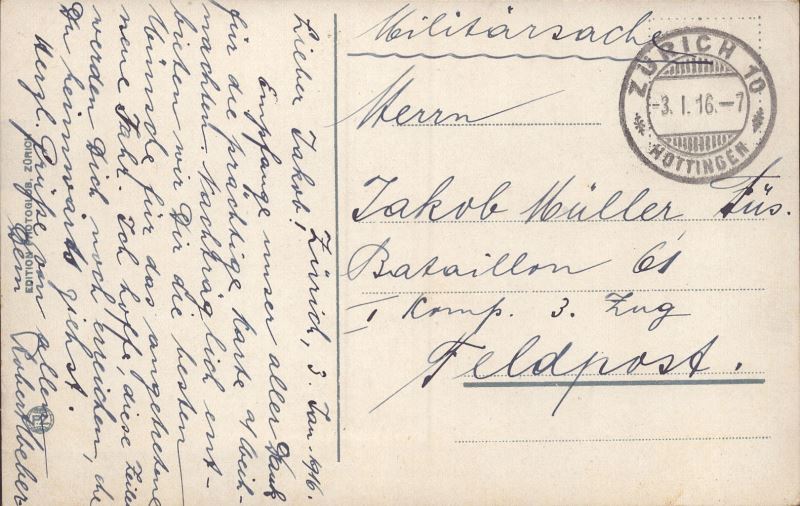 Militärsache
ZÜRICH 10
-3.I.16.-7
HOTTINGEN
Herrn
Jakob Müller, Füs.
Bataillon 61
I Komp. 3. Zug
Feldpost.
Zürich, 3. Jan. 1916.
Lieber Jakob!
Empfange unser aller Dank
für die prächtige Karte a/Weih-
nachten. Nachträglich ent-
bieten wir Dir die besten
Wünsche für das angetretene
neue Jahr. Ich hoffe, diese Zeilen
werden Dich noch erreichen, de
Du heimwärts ziehst.
Herzl. Grüße von allen
Dein Robert Weber
EDITION PHOTOGLOB ZÜRICH